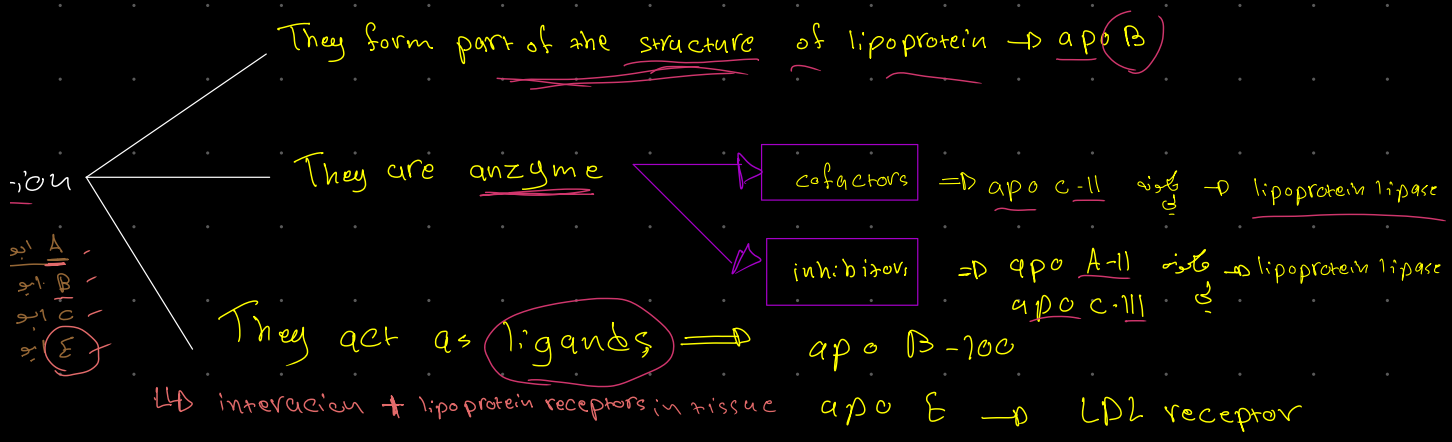 They form part of the structure of lipoprotein → apo B
They are anzyme
cofactors ⇒ apo C-II → lipoprotein lipase
inhibitors ⇒ apo A-II → lipoprotein lipase
apo C-III
-ion
ابو A -
ابو B -
ابو C -
ابو E -
They act as ligands ⇒ apo B-100
interacion + lipoprotein receptors in tissue
apo E → LDL receptor